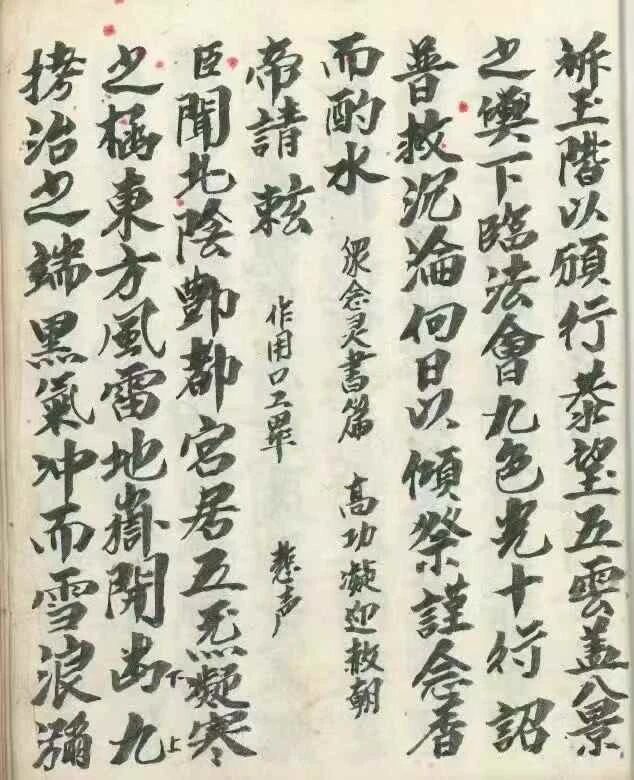 祈玉階以頒行恭望五雲盖八景
之輿下臨法會九色光十行詔
普救沉淪何日以傾祭謹念香
而酌水 衆念灵書篇 高功凝迎赦朝
帝請 作用口工畢 悲声
臣聞北陰酆都宮居五炁凝寒
之極東方風雷地嶽開出九
下上
拷治之端黑氣冲而雪浪瀰